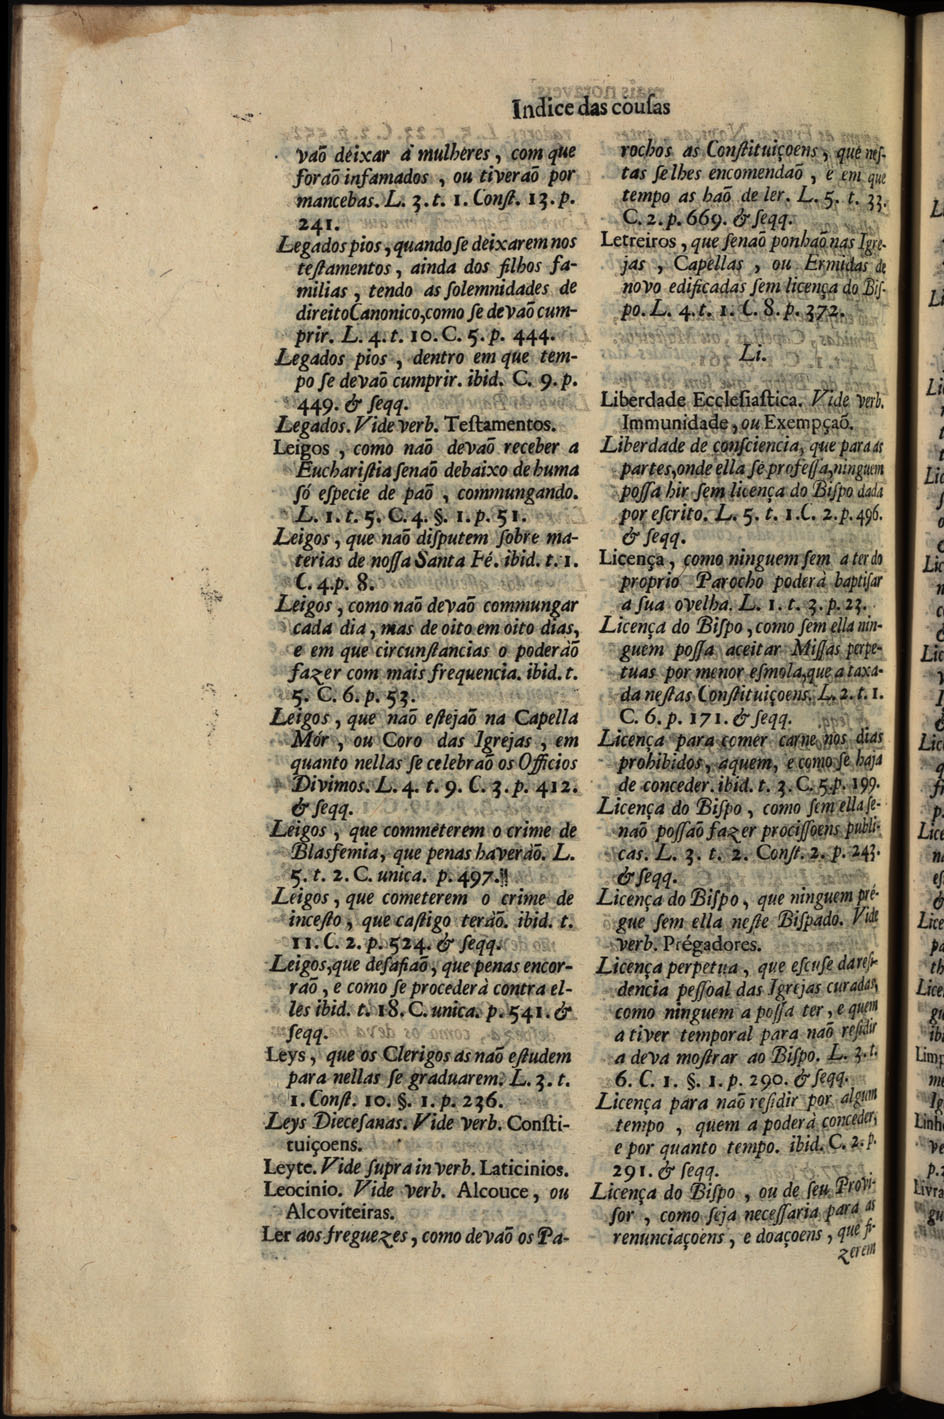 Indice das cousas
vaõ deixar à mulheres, com que
foraõ infamados, ou tiveraõ por
mancebas. L. 3. t. 1. Const. 13. p.
241.
Legados pios, quando se deixarem nos
testamentos, ainda dos filhos fa-
milias, tendo as solemnidades de
direito Canonico, como se devaõ cum-
prir. L. 4. t. 10. C. 5. p. 444.
Legados pios, dentro em que tem-
po se devaõ cumprir. ibid. C. 9. p.
449. & seqq.
Legados. Vide verb. Testamentos.
Leigos, como naõ devaõ receber a
Eucharistia senaõ debaixo de huma
só especie de paõ, commungando.
L. 1. t. 5. C. 4. §. 1. p. 51.
Leigos, que naõ disputem sobre ma-
terias de nossa Santa Fé. ibid. t. 1.
C. 4. p. 8.
Leigos, como naõ devaõ commungar
cada dia, mas de oito em oito dias,
e em que circunstancias o poderáõ
fazer com mais frequencia. ibid. t.
5. C. 6. p. 53.
Leigos, que naõ estejaõ na Capella
Mór, ou Coro das Igrejas, em
quanto nellas se celebraõ os Officios
Divimos. L. 4. t. 9. C. 3. p. 412.
& seqq.
Leigos, que commeterem o crime de
Blasfemia, que penas haveráõ. L.
5. t. 2. C. unica. p. 497.
Leigos, que cometerem o crime de
incesto, que castigo teráõ. ibid. t.
11. C. 2. p. 524. & seqq.
Leigos, que desafiaõ, que penas encor-
raõ, e como se procederà contra el-
les ibid. t. 18. C. unica. p. 541. &
seqq.
Leys, que os Clerigos as naõ estudem
para nellas se graduarem. L. 3. t.
1. Const. 10. §. 1. p. 236.
Leys Diecesanas. Vide verb. Consti-
tuiçoens.
Leyte. Vide supra in verb. Laticinios.
Leocinio. Vide verb. Alcouce, ou
Alcoviteiras.
Ler aos freguezes, como devaõ os Pa-
rochos as Constituiçoens, que nes-
tas se lhes encomendaõ, e em que
tempo as haõ de ler. L. 5. t. 33.
C. 2. p. 669. & seqq.
Letreiros, que senaõ ponhaõ nas Igre-
jas, Capellas, ou Ermidas de
novo edificadas sem licença do Bis-
po. L. 4. t. 1. C. 8. p. 372.
Li.
Liberdade Ecclesiastica. Vide verb.
Immunidade, ou Exempçaõ.
Liberdade de consciencia, que para as
partes, onde ella se professa, ninguem
possa hir sem licença do Bispo dada
por escrito. L. 5. t. 1. C. 2. p. 496.
& seqq.
Licença, como ninguem sem a ter do
proprio Parocho poderà baptisar
a sua ovelha. L. 1. t. 3. p. 23.
Licença do Bispo, como sem ella nin-
guem possa aceitar Missas perpe-
tuas por menor esmola, que a taxa-
da nestas Constituiçoens. L. 2. t. 1.
C. 6. p. 171. & seqq.
Licença para comer carne nos dias
prohibidos, aquem, e como se haja
de conceder. ibid. t. 3. C. 5. p. 199.
Licença do Bispo, como sem ella se-
naõ possaõ fazer procissoens publi-
cas. L. 3. t. 2. Const. 2. p. 243.
& seqq.
Licença do Bispo, que ninguem pré-
gue sem ella neste Bispado. Vide
verb. Prégadores.
Licença perpetua, que escuse da resi-
dencia pessoal das Igrejas curadas,
como ninguem a possa ter, e quem
a tiver temporal para naõ residir
a deva mostrar ao Bispo. L. 3. t.
6. C. 1. §. 1. p. 290. & seqq.
Licença para naõ residir por algum
tempo, quem a poderá conceder,
e por quanto tempo. ibid. C. 2. p.
291. & seqq.
Licença do Bispo, ou de seu Provi-
sor, como seja necessaria para as
renunciaçoens, e doaçoens, que fi-
zerem